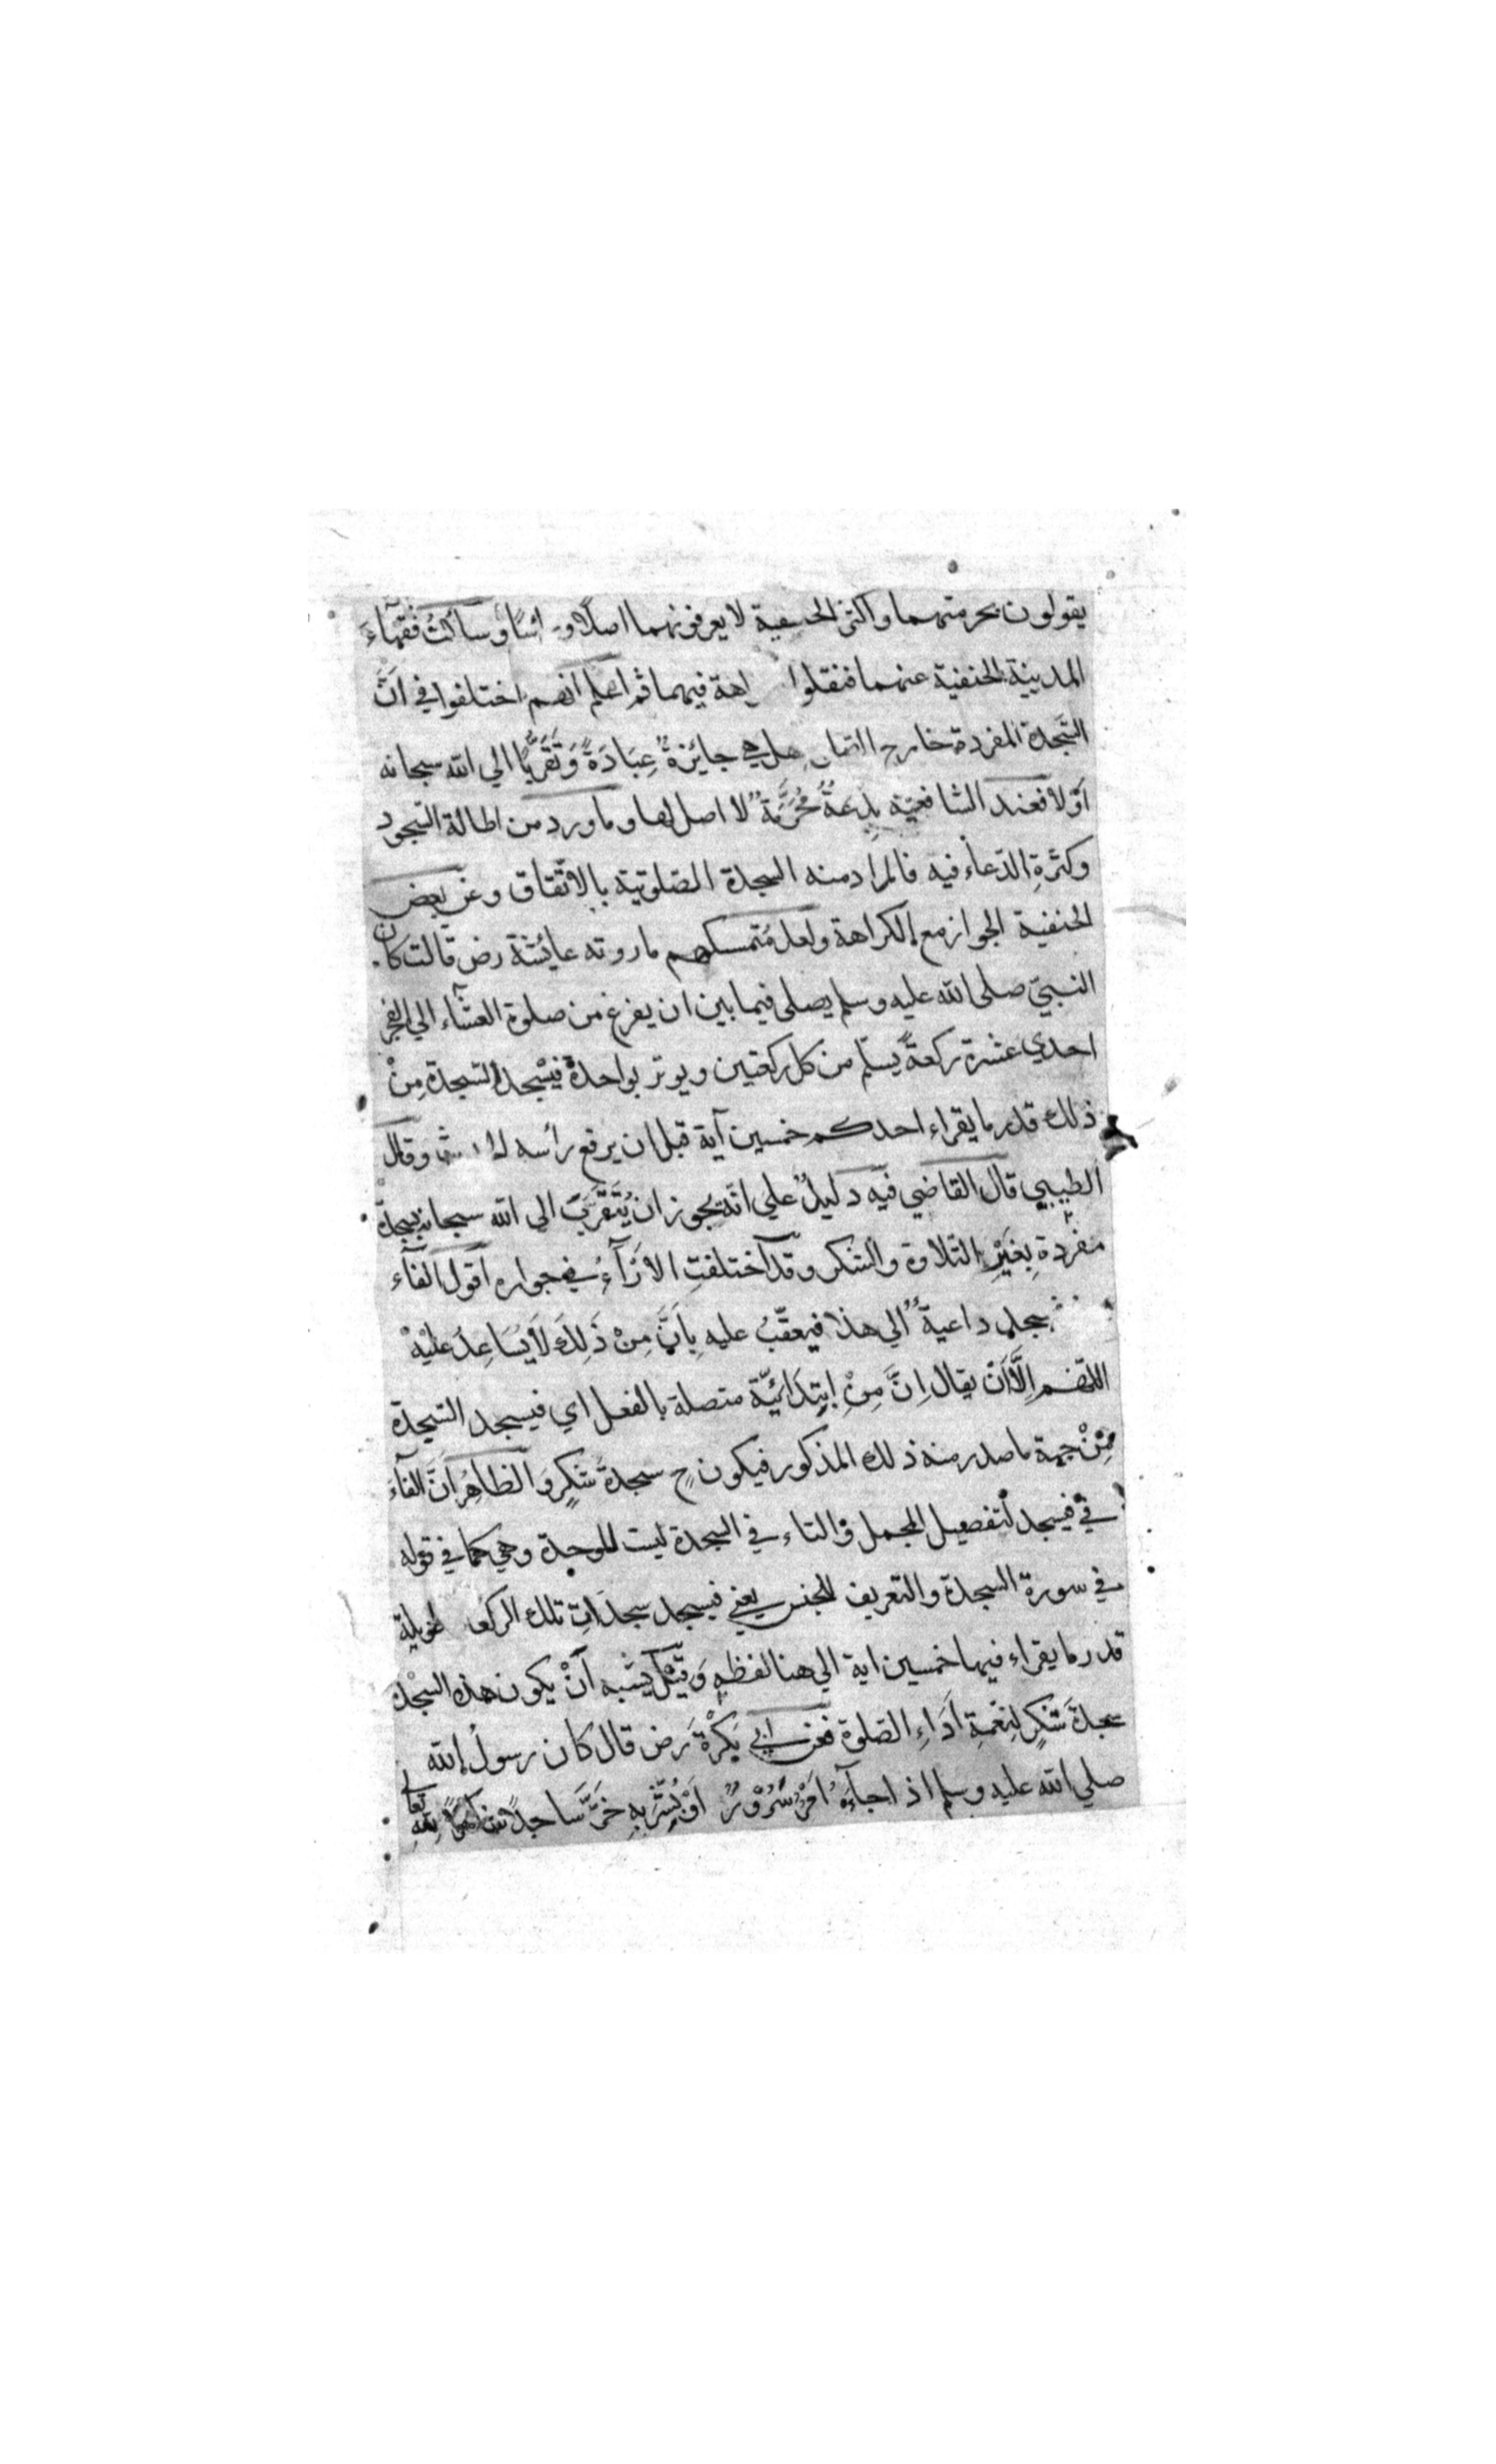 يقولون بحرمتهما واكثر الحنفية لا يعرفونهما اصلًا و سألتُ فقهآءَ
المدينة الحنفية عنهما فنقلوا فيهما ثم اعلم انهم اختلفوا في انَّ
السَّجدة المفردة خارج هل هي جايزةٌ عِبَادَةً وَتَقَرُّبًا الي الله سبحانه
اَوْ لا فعند الشافعيّة بِدعةٌ مُحَرَّمَةٌ لا اصل لها وما ورد من اطالة السّجود
وكثرةِ الدّعاء فيه فالمراد منه السجدة الصّلوتية بالاتّفاق وعن بعض
الحنفية الجواز مع الكراهة ولعل مُتمسكهم ما روته عايُشة رض قالت كان
النبيّ صلى الله عليه وسلم يصلى فيما بين ان يفرغ من صلوة العشآء الي الفجر
احدي عشرة ركعةً يسلّم من كل ركعتين ويوتر بواحدة فيسْجد السّجدة مِنْ
ذلك قدر ما يقراء احدكم خمسين آية قبل ان يرفع رأسه وقال
الطيبي قال القاضي فيه دليلٌ علي انّه يجوز ان يُتَقَرَّبَ الى الله سبحانه بسجدة
مفردةِ بِغَيْرِ التلاوة والشكر وقد اختلفتِ الاٰرَآءُ في جوازه اقول الفآء
داعيةً الي هذا فيعقّبُ عليه بِاَنَّ مِنْ ذَلِكَ لَا يُسَاعِدُ عليْهْ
اللّهم اِلَّا اَنْ يقال اِنَّ مِنْ اِبتِدَائِيَّة متصلة بالفعل اي فيسجد السّجدة
مِنْ جهة ما صدر منه ذلك المذكور فيكون ح سجدةَ شُكرٍ وَالظاهِرُ اَنَّ الفآءَ
في فيسجد لتفصيل المجمل والتاء في السجدة ليست للوحدة وهي كما في قوله
في سورة السجدة والتعريف للجنس يعني فيسجد سجدَاتِ تلك طويلة
قدر ما يقراء فيها خمسين اية الي هنا لفظه وَقِيْلَ يشبه اَنْ يكون هذه السجدة
سجدةَ شُكرٍ لِنِعْمَةِ اَدَاءِ الصّلوة فعن ابي بَكْرَةَ رَض قال كان رسولُ الله
صلي الله عليه وسلم اذا جآءَهُ اَمْرُ سُرُوْرٌ اَوْ يُسَرُّ بِهِ خَرَّ سَاجدًا شاكرًا لِلّٰهِ تعالى